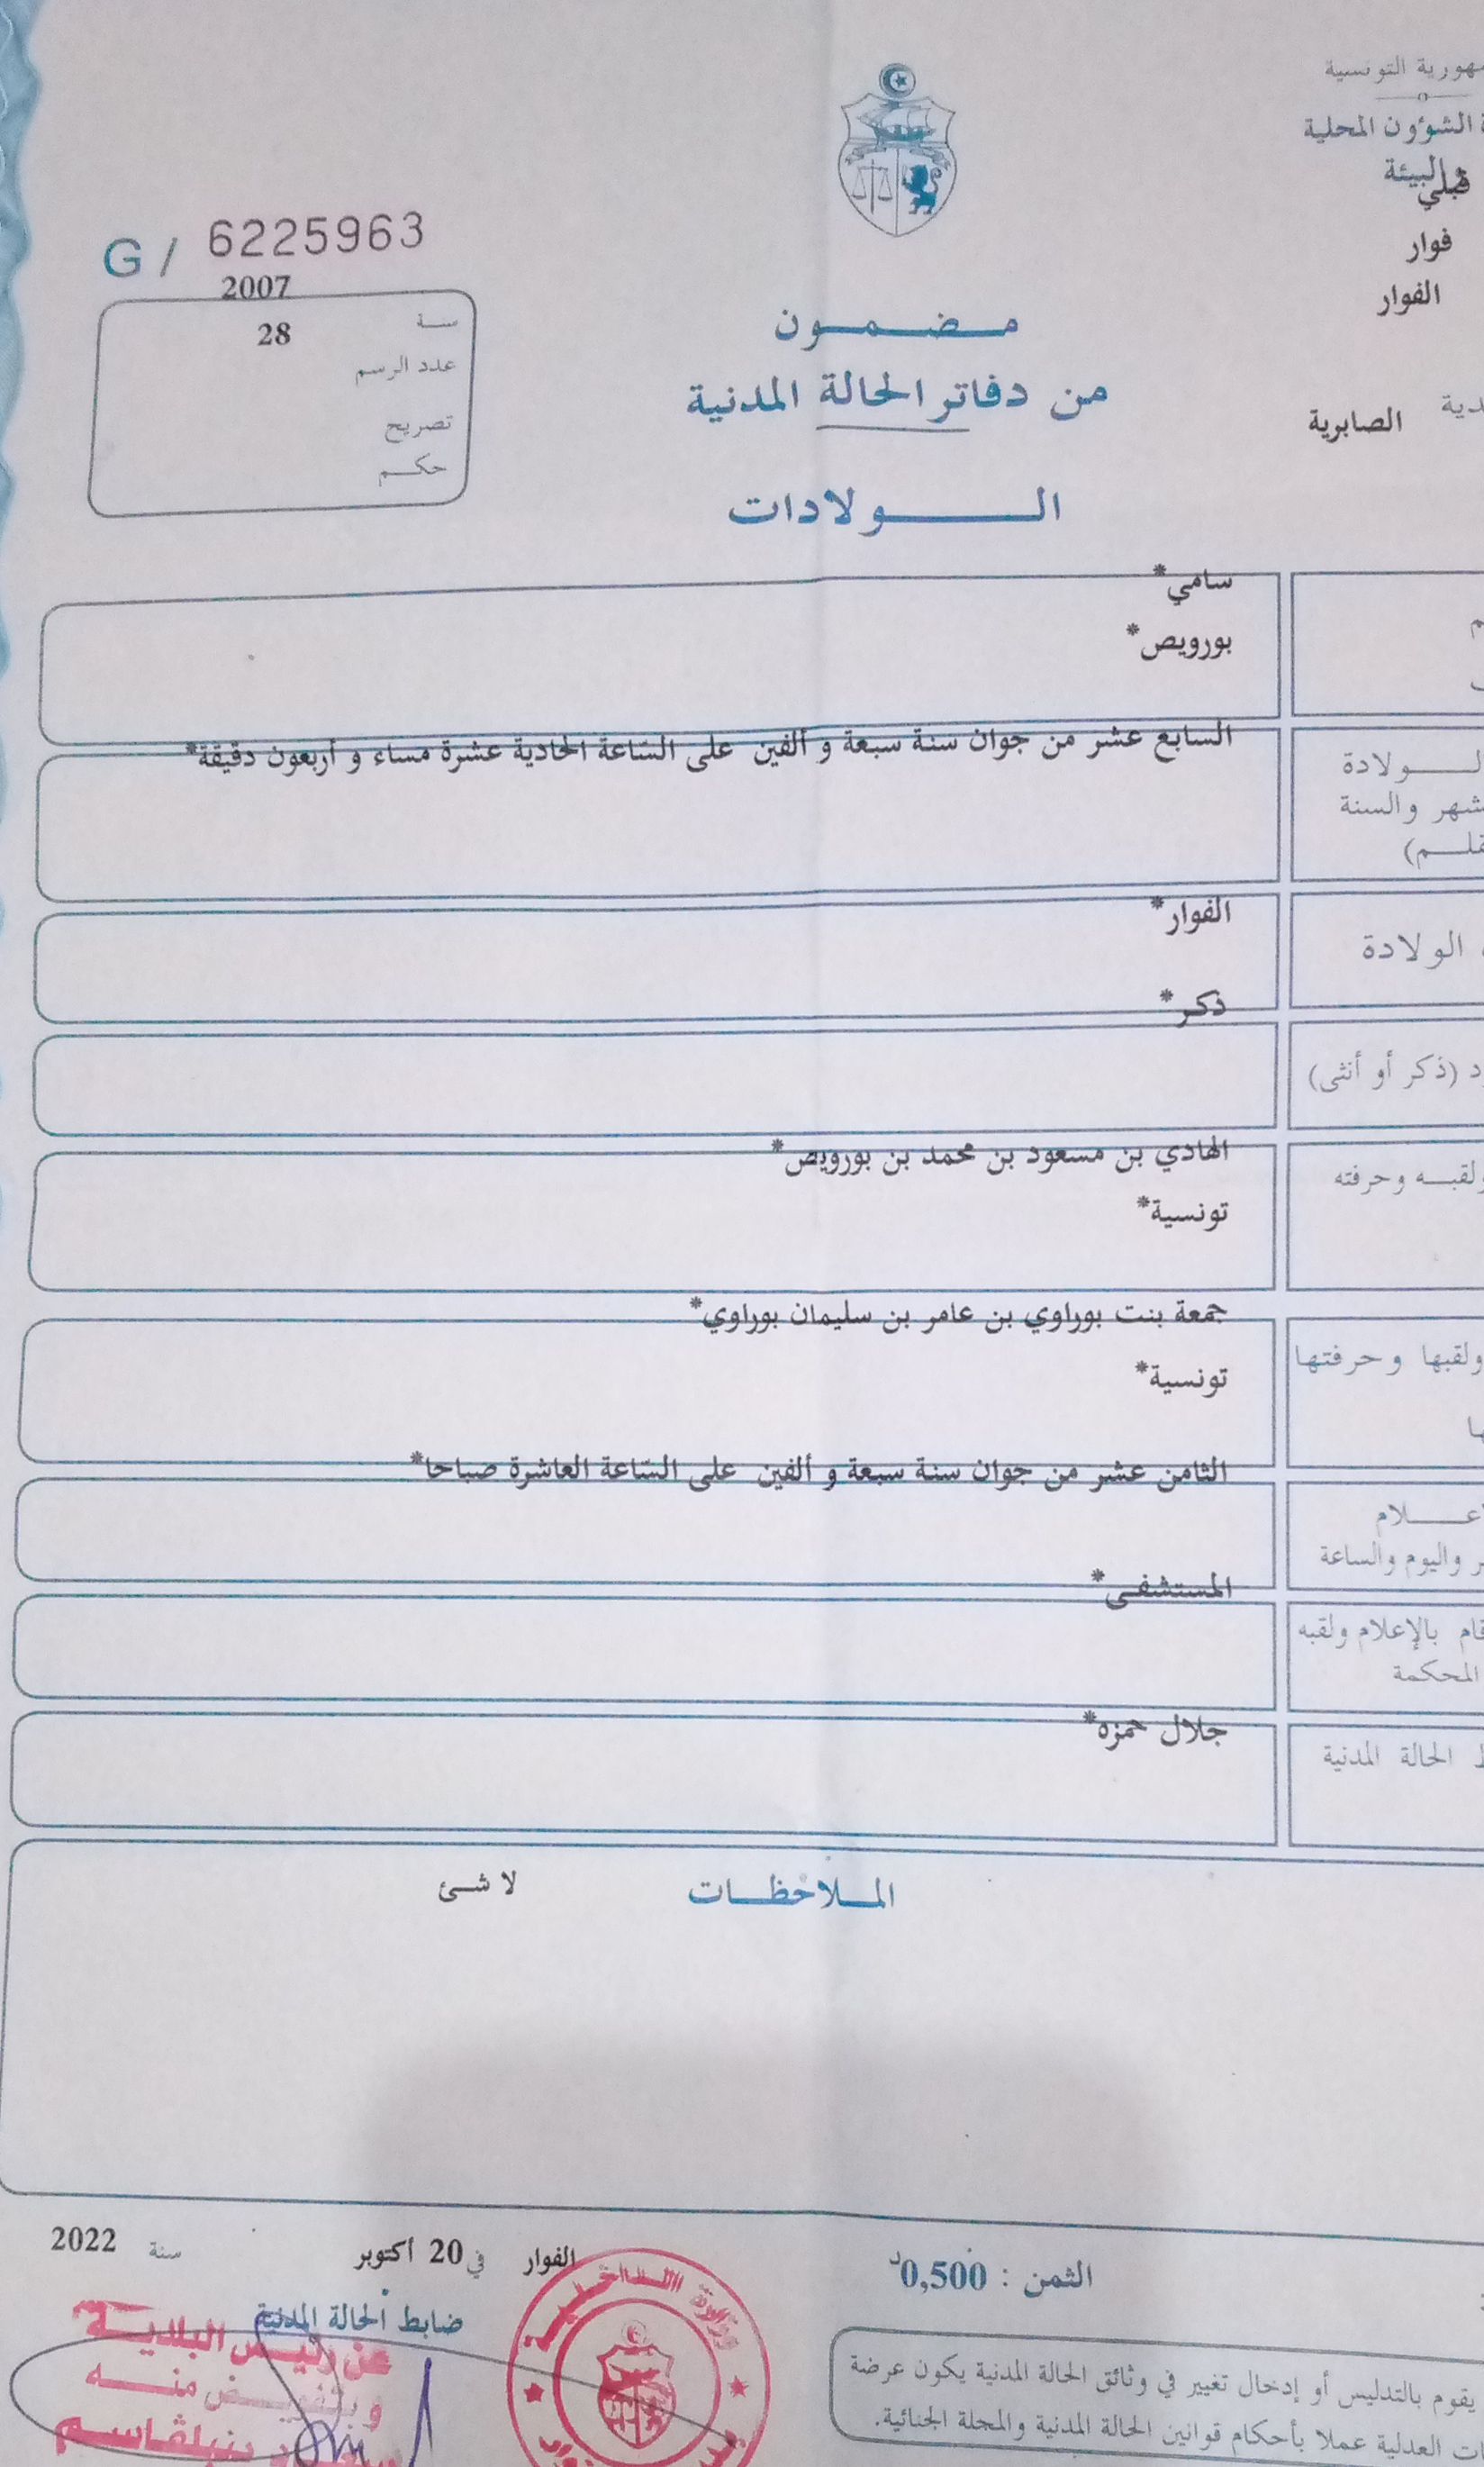 التونسية
الشوؤون المحلية
والبيئة
قبلي
فوار
الفوار
الصابرية
G / 6225963
2007
سنة
28
عدد الرسم
تصريح
حكم
مضمون
من دفاتر الحالة المدنية
الولادات
سامي*
بورويص*
السابع عشر من جوان سنة سبعة و ألفين على السّاعة الحادية عشرة مساء و أربعون دقيقة*
الولادة
والسنة
الفوار*
الولادة
ذكر*
(ذكر أو أنثى)
الهادي بن مسعود بن محمد بن بورويص*
ولقبه وحرفته
تونسية*
جمعة بنت بوراوي بن عامر بن سليمان بوراوي*
ولقبها وحرفتها
تونسية*
الثامن عشر من جوان سنة سبعة و ألفين على السّاعة العاشرة صباحا*
واليوم والساعة
المستشفى*
بالإعلام ولقبه
المحكمة
جلال حمزه*
الحالة المدنية
الملاحظات
لا شئ
الثمن : 0,500د
الفوار في 20 أكتوبر سنة 2022
ضابط الحالة المدنية
عن رئيس البلدية
وبتفويض منه
بنبلقاسم
وزارة الداخلية
يقوم بالتدليس أو إدخال تغيير في وثائق الحالة المدنية يكون عرضة
العدلية عملا بأحكام قوانين الحالة المدنية والمجلة الجنائية.